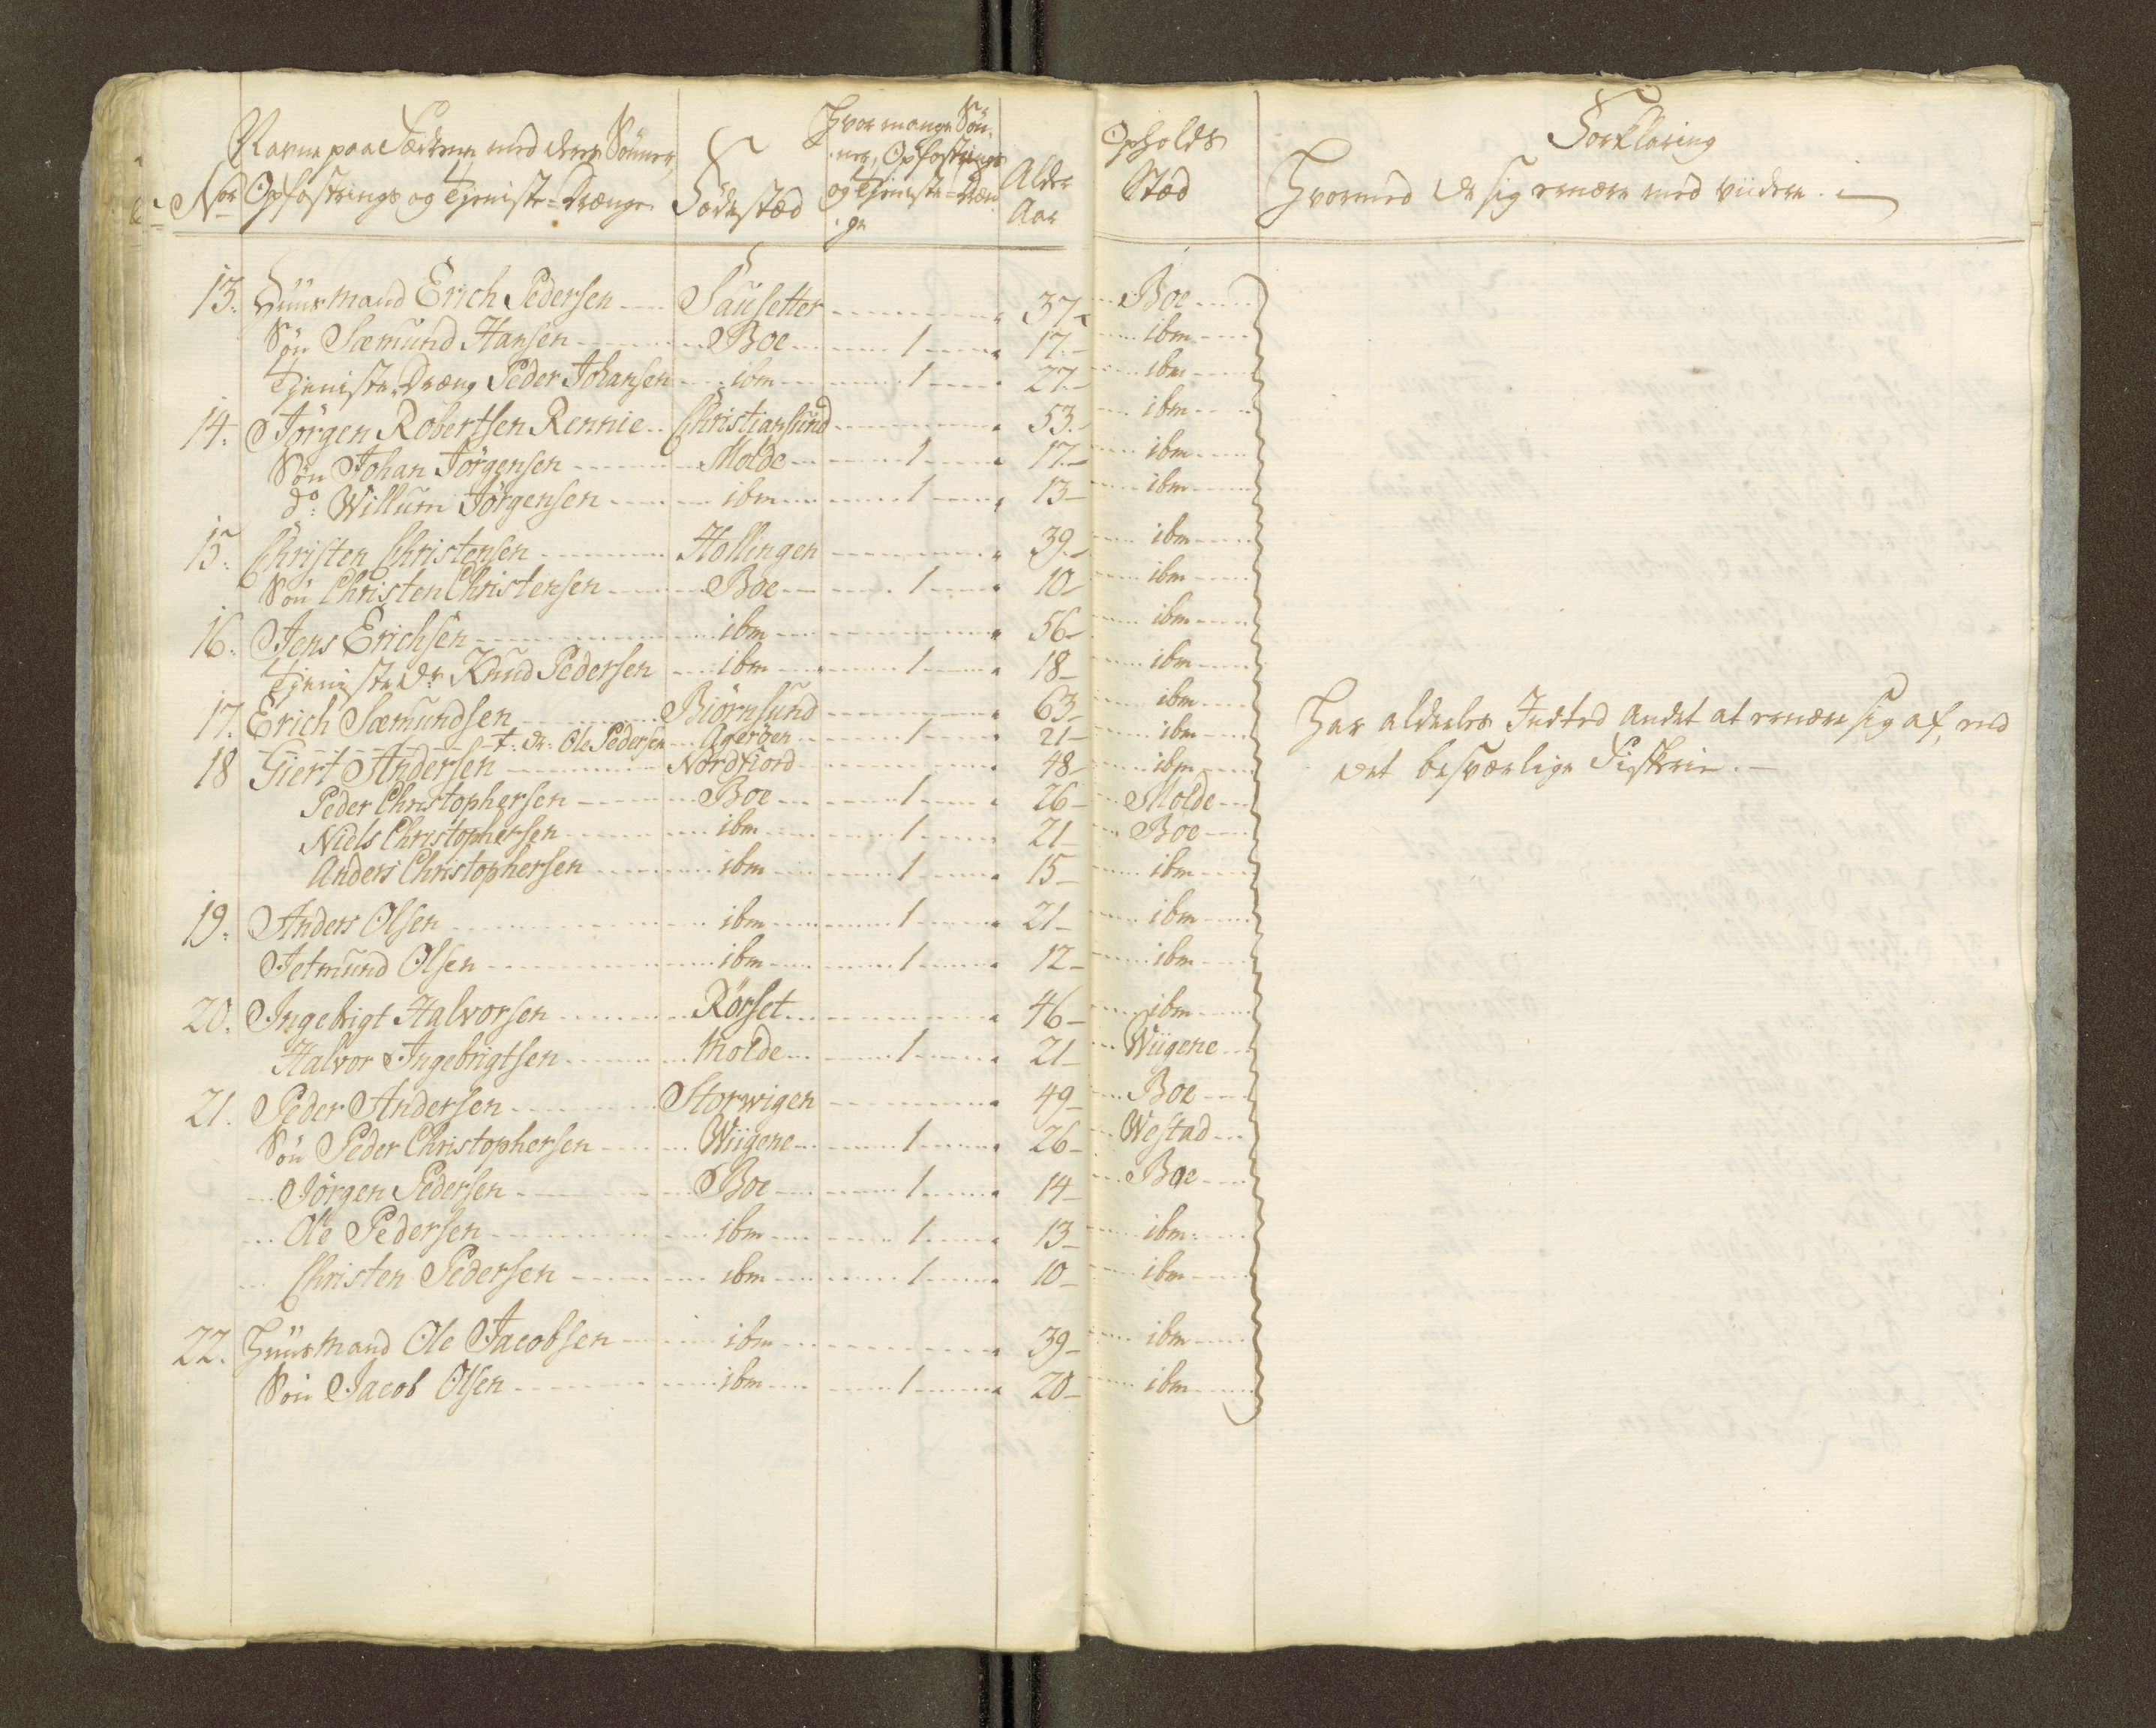 Navne paa Fædrene med deres Sönner,
Nor Opfostrings og Tjeniste-Drænge
Födestæd
Hvor mange Sön-
ner, Opfostrings
og Tjeniste-Dræn
ge
Alder
Aar
Opholds
Stæd
Forklaring
Hvormed de sig ernære med viidere.
13. Huusmand Erich Pedersen Sausetter 37 Boe
Sön Sæmund Hansen Boe 1 17 ibm
Tjeniste Dræng Peder Johansen ibm 1 27 ibm
14. Jörgen Robertsen Rennie Christiansund 53 ibm
Sön Johan Jörgensen Molde 1 17 ibm
do: Willum Jörgensen ibm 1 13 ibm
15. Christen Christensen Hollingen 39 ibm
Sön Christen Christensen Boe 1 10 ibm
16. Jens Erichsen ibm 56 ibm
Tjeniste Dr Knud Pedersen ibm 1 18 ibm
17. Erich Sæmundsen Biörnsund 63 ibm
T: Dr: Ole Pedersen Ageröen 1 21 ibm
18 Giert Andersen Nordfiord 48 ibm
Peder Christophersen Boe 1 26 Molde
Niels Christophersen ibm 1 21 Boe
Anders Christophersen ibm 1 15 ibm
19. Anders Olsen ibm 1 21 ibm
Jetmund Olsen ibm 1 12 ibm
20. Ingebrigt Halvorsen Rörset 46 ibm
Halvor Ingebrigtsen Molde 1 21 Wiigene
21. Peder Andersen Storwigen 49 Boe
Sön Peder Christophersen Wiigene 1 26 Westad
Jörgen Pedersen Boe 1 14 Boe
Ole Pedersen ibm 1 13 ibm
Christen Pedersen ibm 1 10 ibm
22. Huusmand Ole Jacobsen ibm 39 ibm
Sön Jacob Olsen ibm 1 20 ibm
Har aldeeles Indted andet at ernære sig af, end
det besværlige Fiskerie.